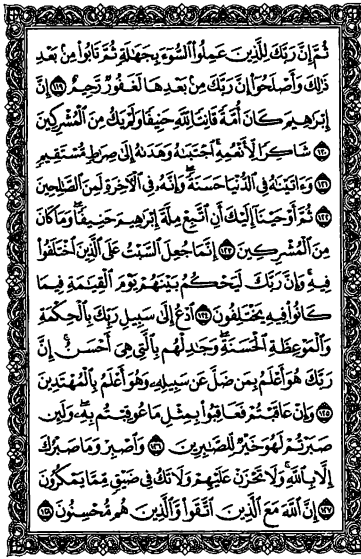 ثُمَّ إِنَّ رَبَّكَ لِلَّذِينَ عَمِلُوا۟ ٱلسُّوٓءَ بِجَهَـٰلَةٍ ثُمَّ تَابُوا۟ مِنۢ بَعْدِ
ذَٰلِكَ وَأَصْلَحُوٓا۟ إِنَّ رَبَّكَ مِنۢ بَعْدِهَا لَغَفُورٌ رَّحِيمٌ ١١٩ إِنَّ
إِبْرَٰهِيمَ كَانَ أُمَّةً قَانِتًا لِّلَّهِ حَنِيفًا وَلَمْ يَكُ مِنَ ٱلْمُشْرِكِينَ
١٢٠ شَاكِرًا لِّأَنْعُمِهِ ۚ ٱجْتَبَىٰهُ وَهَدَىٰهُ إِلَىٰ صِرَٰطٍ مُّسْتَقِيمٍ
١٢١ وَءَاتَيْنَـٰهُ فِى ٱلدُّنْيَا حَسَنَةً ۖ وَإِنَّهُۥ فِى ٱلْـَٔاخِرَةِ لَمِنَ ٱلصَّـٰلِحِينَ
١٢٢ ثُمَّ أَوْحَيْنَآ إِلَيْكَ أَنِ ٱتَّبِعْ مِلَّةَ إِبْرَٰهِيمَ حَنِيفًا ۖ وَمَا كَانَ
مِنَ ٱلْمُشْرِكِينَ ١٢٣ إِنَّمَا جُعِلَ ٱلسَّبْتُ عَلَى ٱلَّذِينَ ٱخْتَلَفُوا۟
فِيهِ ۚ وَإِنَّ رَبَّكَ لَيَحْكُمُ بَيْنَهُمْ يَوْمَ ٱلْقِيَـٰمَةِ فِيمَا
كَانُوا۟ فِيهِ يَخْتَلِفُونَ ١٢٤ ٱدْعُ إِلَىٰ سَبِيلِ رَبِّكَ بِٱلْحِكْمَةِ
وَٱلْمَوْعِظَةِ ٱلْحَسَنَةِ ۖ وَجَـٰدِلْهُم بِٱلَّتِى هِىَ أَحْسَنُ ۚ إِنَّ
رَبَّكَ هُوَ أَعْلَمُ بِمَن ضَلَّ عَن سَبِيلِهِۦ ۖ وَهُوَ أَعْلَمُ بِٱلْمُهْتَدِينَ
١٢٥ وَإِنْ عَاقَبْتُمْ فَعَاقِبُوا۟ بِمِثْلِ مَا عُوقِبْتُم بِهِۦ ۖ وَلَئِن
صَبَرْتُمْ لَهُوَ خَيْرٌ لِّلصَّـٰبِرِينَ ١٢٦ وَٱصْبِرْ وَمَا صَبْرُكَ
إِلَّا بِٱللَّهِ ۚ وَلَا تَحْزَنْ عَلَيْهِمْ وَلَا تَكُ فِى ضَيْقٍ مِّمَّا يَمْكُرُونَ
١٢٧ إِنَّ ٱللَّهَ مَعَ ٱلَّذِينَ ٱتَّقَوا۟ وَّٱلَّذِينَ هُم مُّحْسِنُونَ ١٢٨